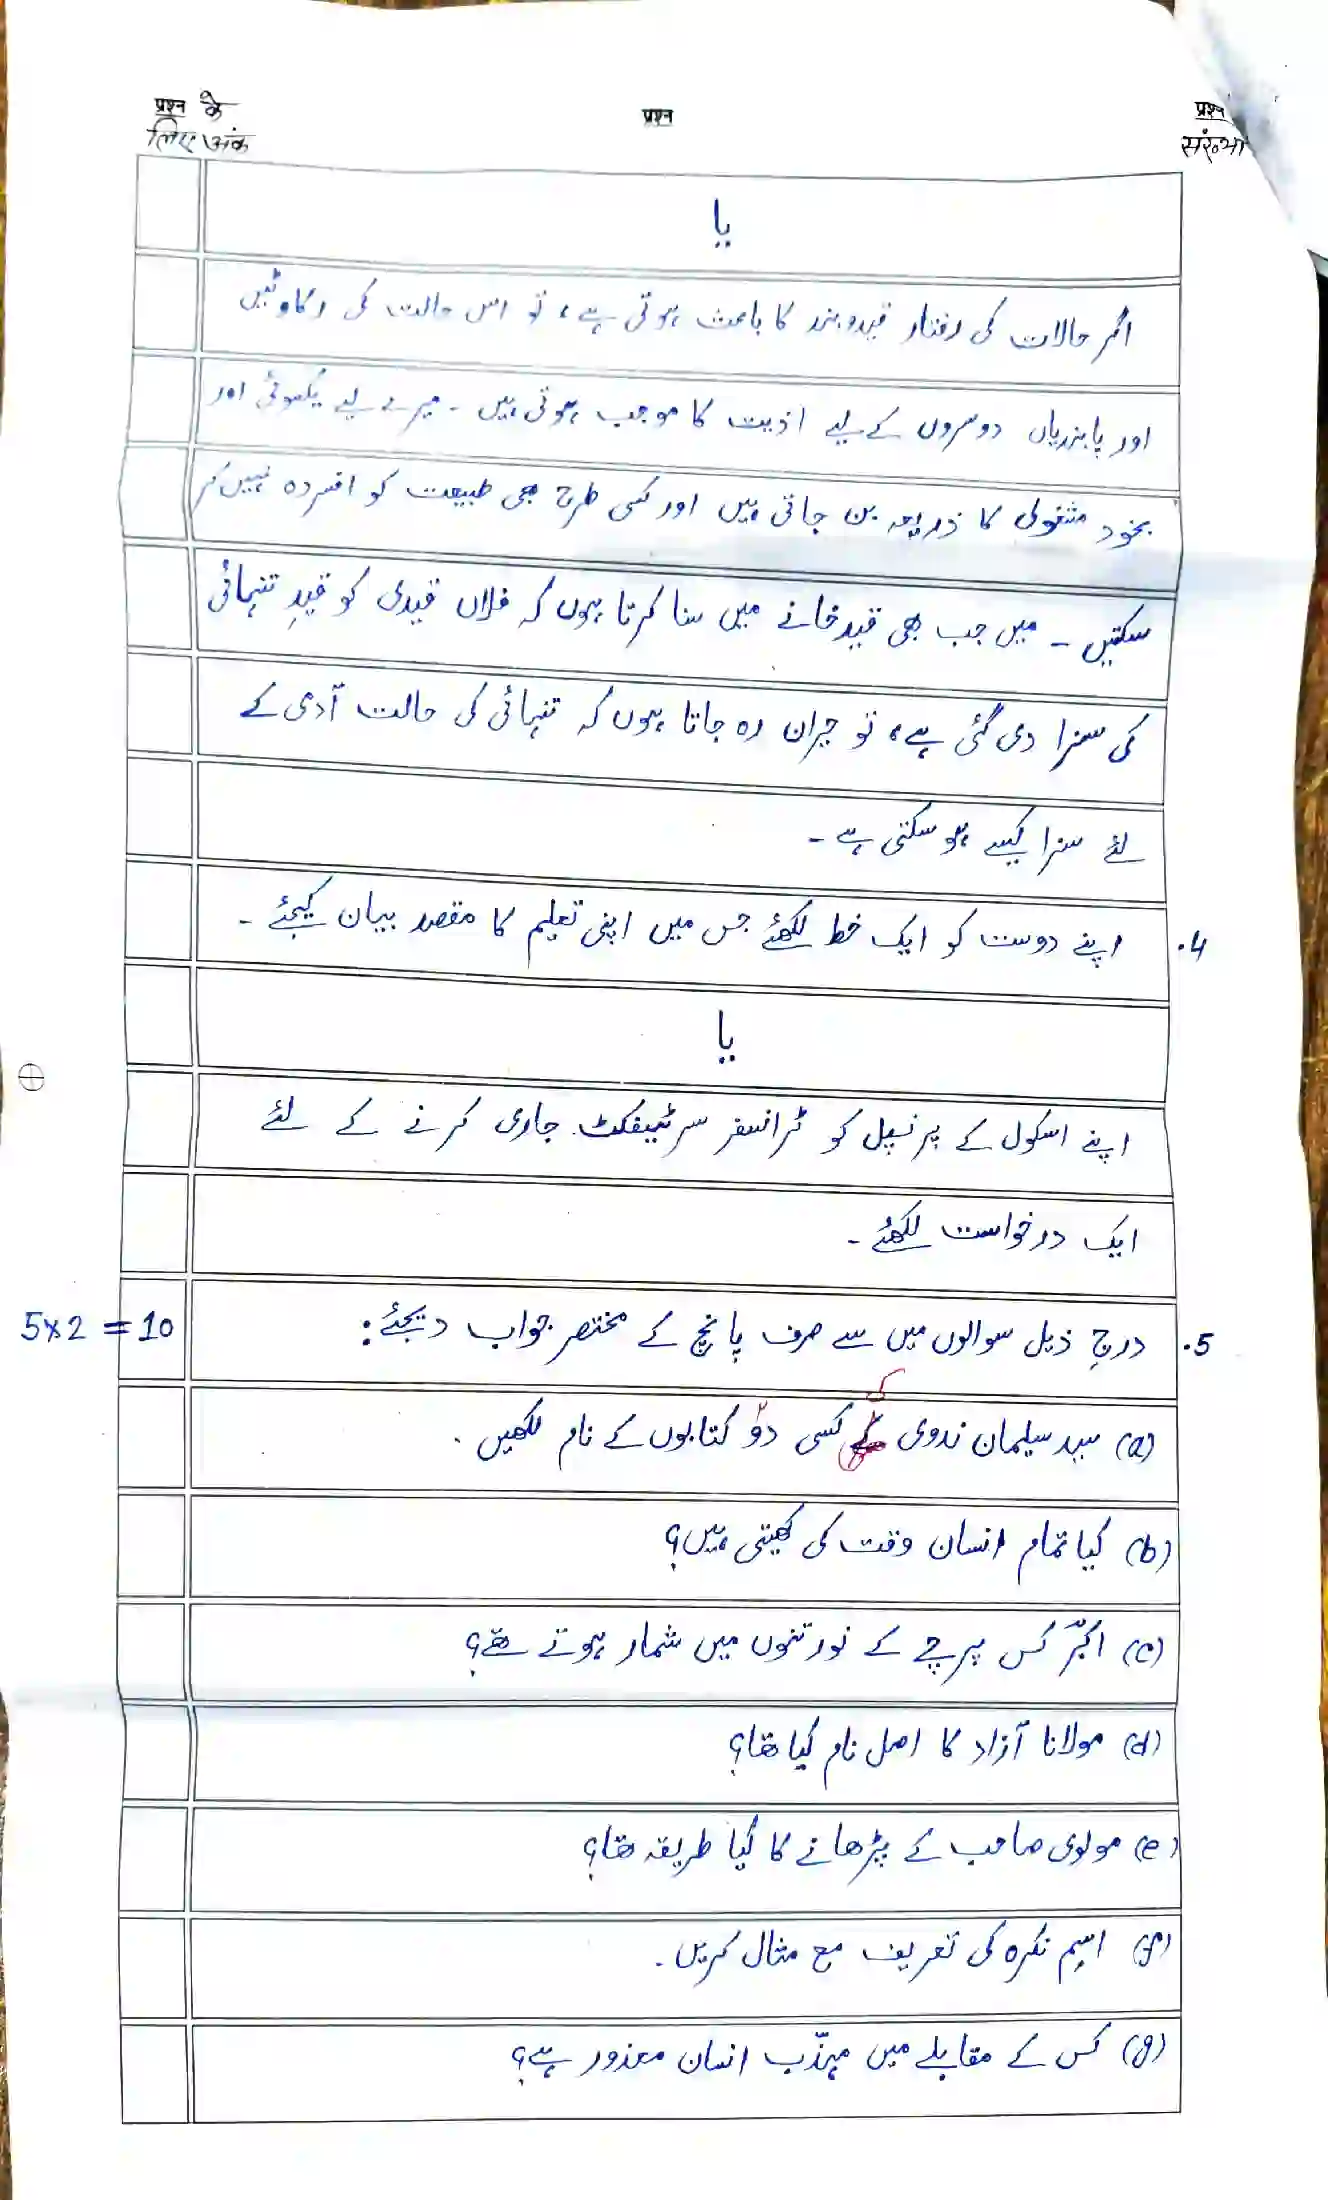 प्रश्न के
लिए अंक
प्रश्न
प्रश्न
संख्या
یا
اگر حالات کی رفتار قیدوبند کا باعث ہوتی ہے، تو اس حالت کی رکاوٹیں
اور پابندیاں دوسروں کے لیے اذیت کا موجب ہوتی ہیں۔ میرے لیے یکسوئی اور
بخود مشغولی کا ذریعہ بن جاتی ہیں اور کسی طرح بھی طبیعت کو افسردہ نہیں کر
سکتیں۔ میں جب بھی قیدخانے میں سنا کرتا ہوں کہ فلاں قیدی کو قیدِ تنہائی
کی سزا دی گئی ہے، تو حیران رہ جاتا ہوں کہ تنہائی کی حالت آدمی کے
لئے سزا کیسے ہو سکتی ہے۔
4. اپنے دوست کو ایک خط لکھئے جس میں اپنی تعلیم کا مقصد بیان کیجئے۔
یا
اپنے اسکول کے پرنسپل کو ٹرانسفر سرٹیفکٹ جاری کرنے کے لئے
ایک درخواست لکھئے۔
5. درج ذیل سوالوں میں سے صرف پانچ کے مختصر جواب دیجئے: 5×2=10
(a) سید سلیمان ندوی کی کسی دو کتابوں کے نام لکھیں۔
(b) کیا تمام انسان وقت کی کھیتی ہیں؟
(c) اکبرؔ کس پرچے کے نورتنوں میں شمار ہوتے تھے؟
(d) مولانا آزاد کا اصل نام کیا تھا؟
(e) مولوی صاحب کے پڑھانے کا کیا طریقہ تھا؟
(f) اسِم نکرہ کی تعریف مع مثال کریں۔
(g) کس کے مقابلے میں مہذّب انسان معذور ہے؟